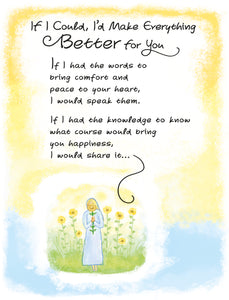 If I Could, I'd Make Everything
Better for You
If I had the words to
bring comfort and
peace to your heart,
I would speak them.
If I had the knowledge to know
what course would bring
you happiness,
I would share it...